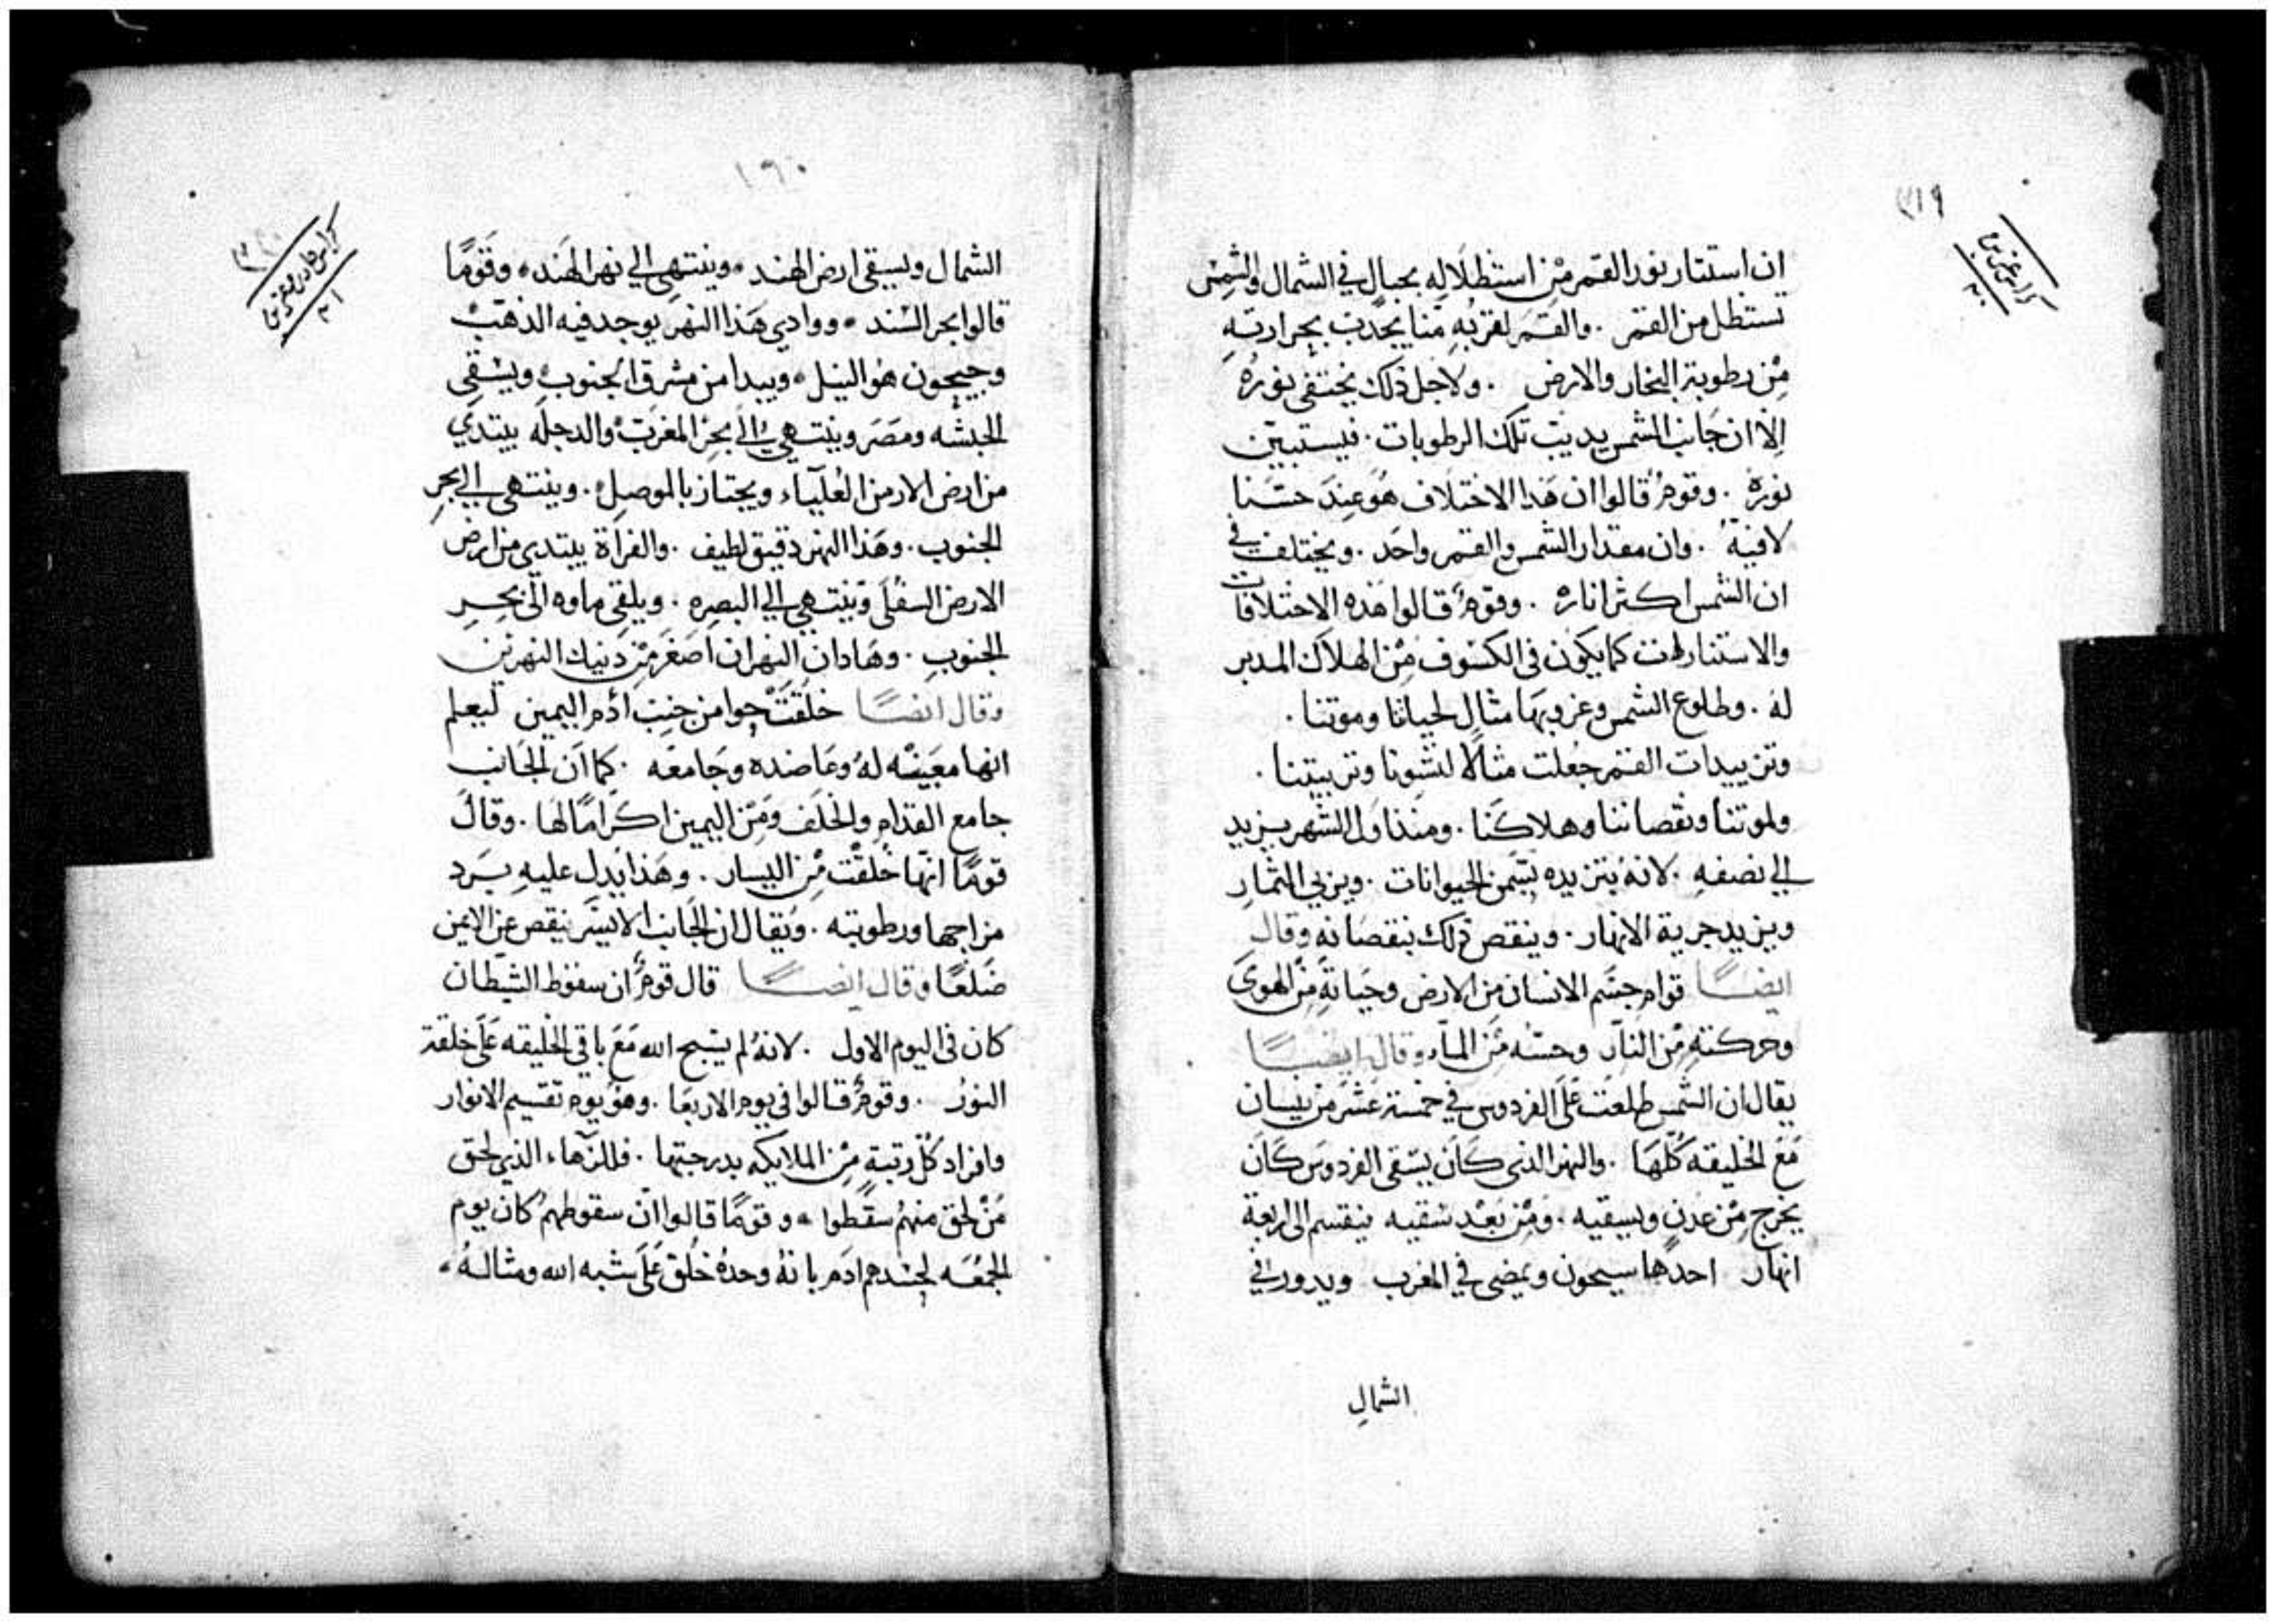 ٣١٩
ان استتار نور القمر مِنْ استظلَالِه بجبالٍ في الشمال والشمس
تستظل من القمر . والقمَر لقربُهِ مّنا يَجْدب بحرارتهِ
مِنْ رطوبة البخار والارض . ولاجل ذلك يختفى نورهُ
اِلا ان جَانب الشمس يديب تلك الرطوبات . فيستبين
نورهُ . وقومُ قالوا ان هَدا الاختلَاف هُوَ عِندَ حسّنا
لا فيهُ . وان مقدار الشمس والقمر واحَد . ويختلف في
ان الشمس اكثر اناره . وقومٌ قالوا هَذه الاختلافات
والاستنارات كما يكَون في الكسوف مِنْ الهلَاك المدبر
له . وطلوع الشمس وغروبهَا مثال لحياتنا وموتنا .
وتزييدات القمر جعُلت مثالًا لنشونا وتربيتنا .
ولموتنا ونقصاننا وهلاكَنا . ومنذ اول الشهر يزيد
الي نصفهِ . لانهُ بتزيده يسّمن الحيوانات . ويربي الثمار
ويزيد جرية الانهار . وينقص ذلك بنقصَانهِ وقال
ايضًــا قوام جسَم الانسان مِن الارض وحَياتهِ مِنْ الهوىَ
وحركتهِ مِن النار وحسّه مِنَ الماء وقال ايضًــا
يقال ان الشمس طلعَت عَلَى الفردوس في خمسة عَشَر مِنْ نيسان
مَعَ الخليقه كُلّهَا . والنهر الذي كَان يسّقى الفردوسَ كَان
يخرج مِنْ عَدن ويسقيه . ومِنْ بَعْد سَقيه ينقسم الى اربعة
انهار احدهَا سيحون ويمضى في المغرب ويدور في
الشمال
١٦٠
الشمال ويسقي ارض الهند . وينتهى الي نهر الهَند . وقَومًا
قالوا بحر السَند . ووادي هَذا النهر يوجد فيه الذهَب
وجيحون هُو النيل . ويبدا من مشرق الجنوب ويسَقي
الحبشه ومصَر وينتهي الَى بحَر المغرَب والدجله يبتدي
من ارض الارمن العُليَاء ويجتاز بالموصل . وينتهى الي بحرِ
الجنوب . وهَذا النهر دقيق لطيف . والفراة يبتدي من ارض
الارمن السفُلَى وَينتهي الي البصره . ويلقي ماوه الَى بحرِ
الجنوبِ . وهَادان النهران اصَغَر مِنْ دنيك النهرين
وقال ايضًــا خلقَت حوا من جنب ادَم اليمين ليعلم
انها معَينه لهُ وعَاضده وجَامعَه . كما اَن الجَانب
جامع القدام والخلَف ومِنَ اليمين اكَرامًا لهَا . وقالَ
قومًا انّها خلقَت مِن اليسار . وهَذا يدل عليهِ بَرد
مزاجها ورطوبته . ويَقال ان الجَانب الايسَر ينقص عَن الايمن
ضلعًا وقال ايضًــا قال قومٌ ان سقوط الشيطان
كان في اليوم الاول . لانهُ لم يسبح الله مَعَ باقي الخليقه عَلَى خلقة
النورُ . وقومٌ قالوا في يوم الاربعَا . وهَو يوم تقسيم الانوار
وافراد كُل رتبةٍ مِنْ الملايكه بدرجتها . فللزّهاء الذي لحق
مَنْ لحق منهمُ سقَطوا . وقومًا قالوا انّ سقوطهمُ كان يوم
الجمُعَه لحسَدهم ادَم بانهُ وحدهُ خُلق عَلَى شبه الله ومثالهُ .